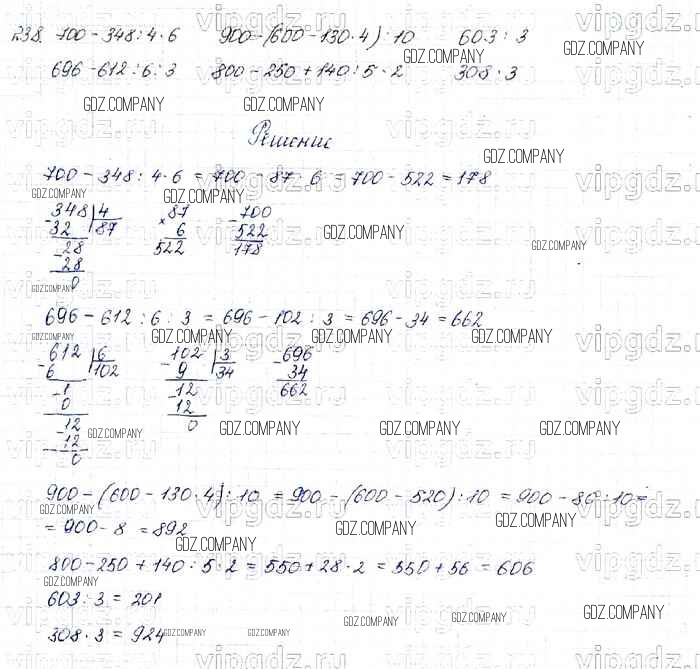 238. 700 - 348 : 4 · 6   900 - (600 - 130 · 4) : 10   603 : 3
696 - 612 : 6 : 3   800 - 250 + 140 : 5 · 2   308 · 3
Решение
700 - 348 : 4 · 6 = 700 - 87 · 6 = 700 - 522 = 178
348 4   87   700
32 87   × 6   - 522
28   522   178
28
0
696 - 612 : 6 : 3 = 696 - 102 : 3 = 696 - 34 = 662
612 6   102 3   696
6 102   9 34   - 34
1   12   662
0   12
12   0
12
0
900 - (600 - 130 · 4) : 10 = 900 - (600 - 520) : 10 = 900 - 80 : 10 =
= 900 - 8 = 892
800 - 250 + 140 : 5 · 2 = 550 + 28 · 2 = 550 + 56 = 606
603 : 3 = 201
308 · 3 = 924
GDZ.COMPANY
vipgdz.ru